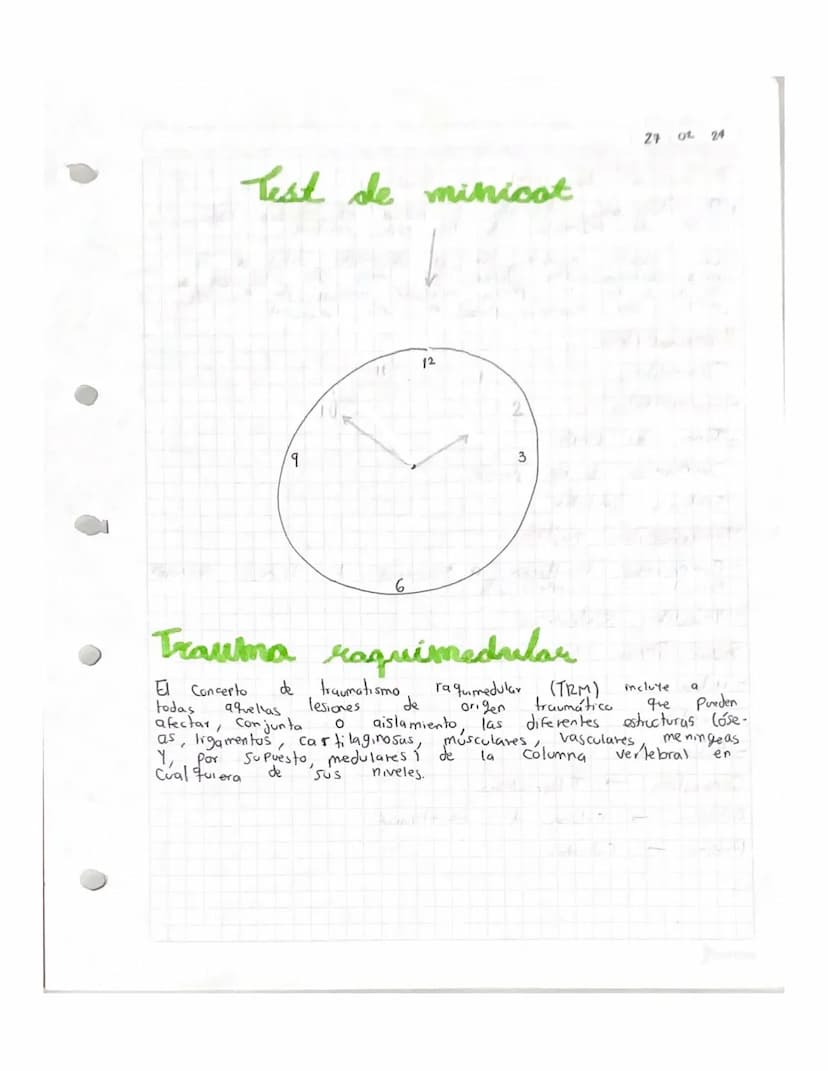 27 02 24
Test de minicot
12
11 1
10 2
9 3
6
Trauma raquimedular
El Concerto de traumatismo raqumedular (TRM) incluye a
todas aquellas lesiones de origen traumático que Pueden
afectar, conjunta o aislamiento, las diferentes estructuras (óse-
as, ligamentos, cartilaginosus, músculares, vasculares, meningeas
Y, por supuesto, medulares) de la Columna vertebral en
Cualquiera de sus niveles.